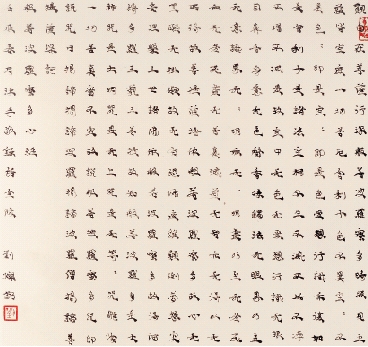 觀自在菩薩行深般若波羅蜜多時照見五
蘊皆空度一切苦厄舍利子色不異空空不
異色色即是空空即是色受想行識亦復如
是舍利子是諸法空相不生不滅不垢不淨
不增不減是故空中无色无受想行識无眼
耳鼻舌身意无色聲香味觸法无眼界乃至
无意識界无无明亦无无明盡乃至无老死
亦无老死盡无苦集滅道无智亦无得以无
所得故菩提薩埵依般若波羅蜜多故心无
罣礙无罣礙故无有恐怖遠離顛倒夢想究
竟涅槃三世諸佛依般若波羅蜜多故得阿
耨多羅三藐三菩提故知般若波羅蜜多是大
神咒是大明咒是无上咒是无等等咒能除
一切苦真實不虛故說般若波羅蜜多咒即
說咒曰揭諦揭諦波羅揭諦波羅僧揭諦菩
提薩婆訶
般若波羅蜜多心經